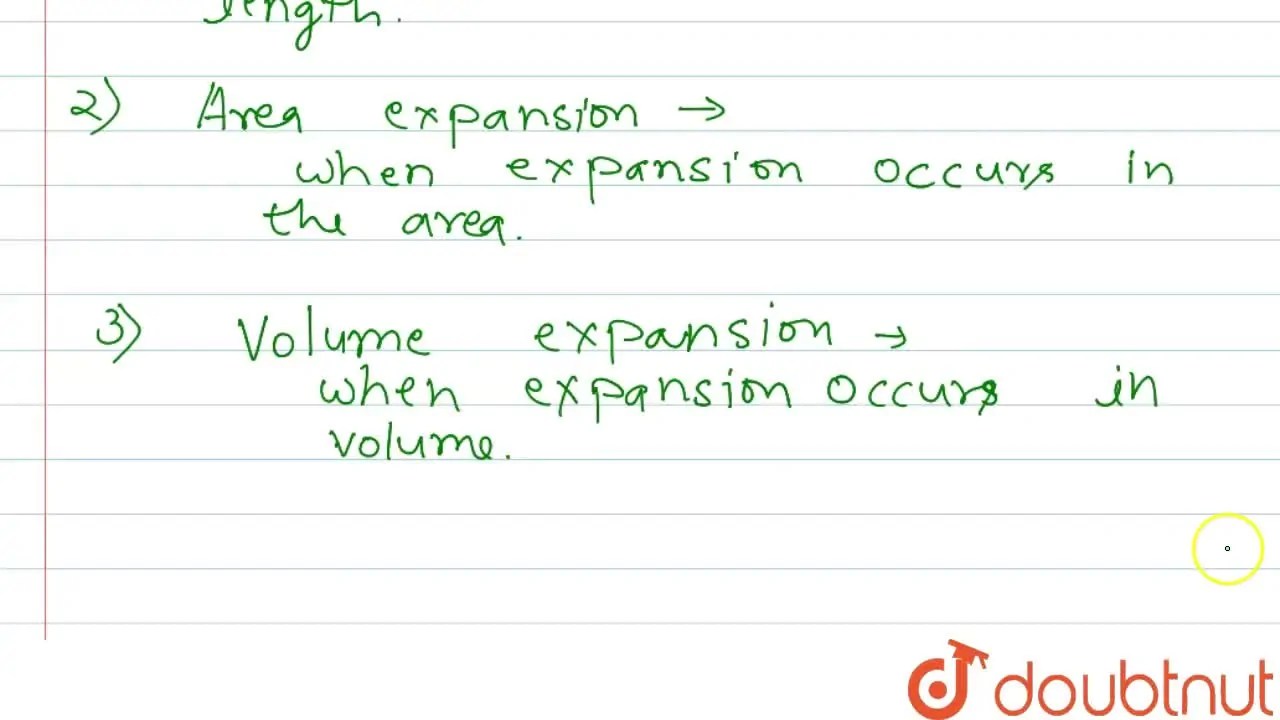 length.
2) Area expansion →
when expansion occurs in
the area.
3) Volume expansion →
when expansion occurs in
volume.
doubtnut